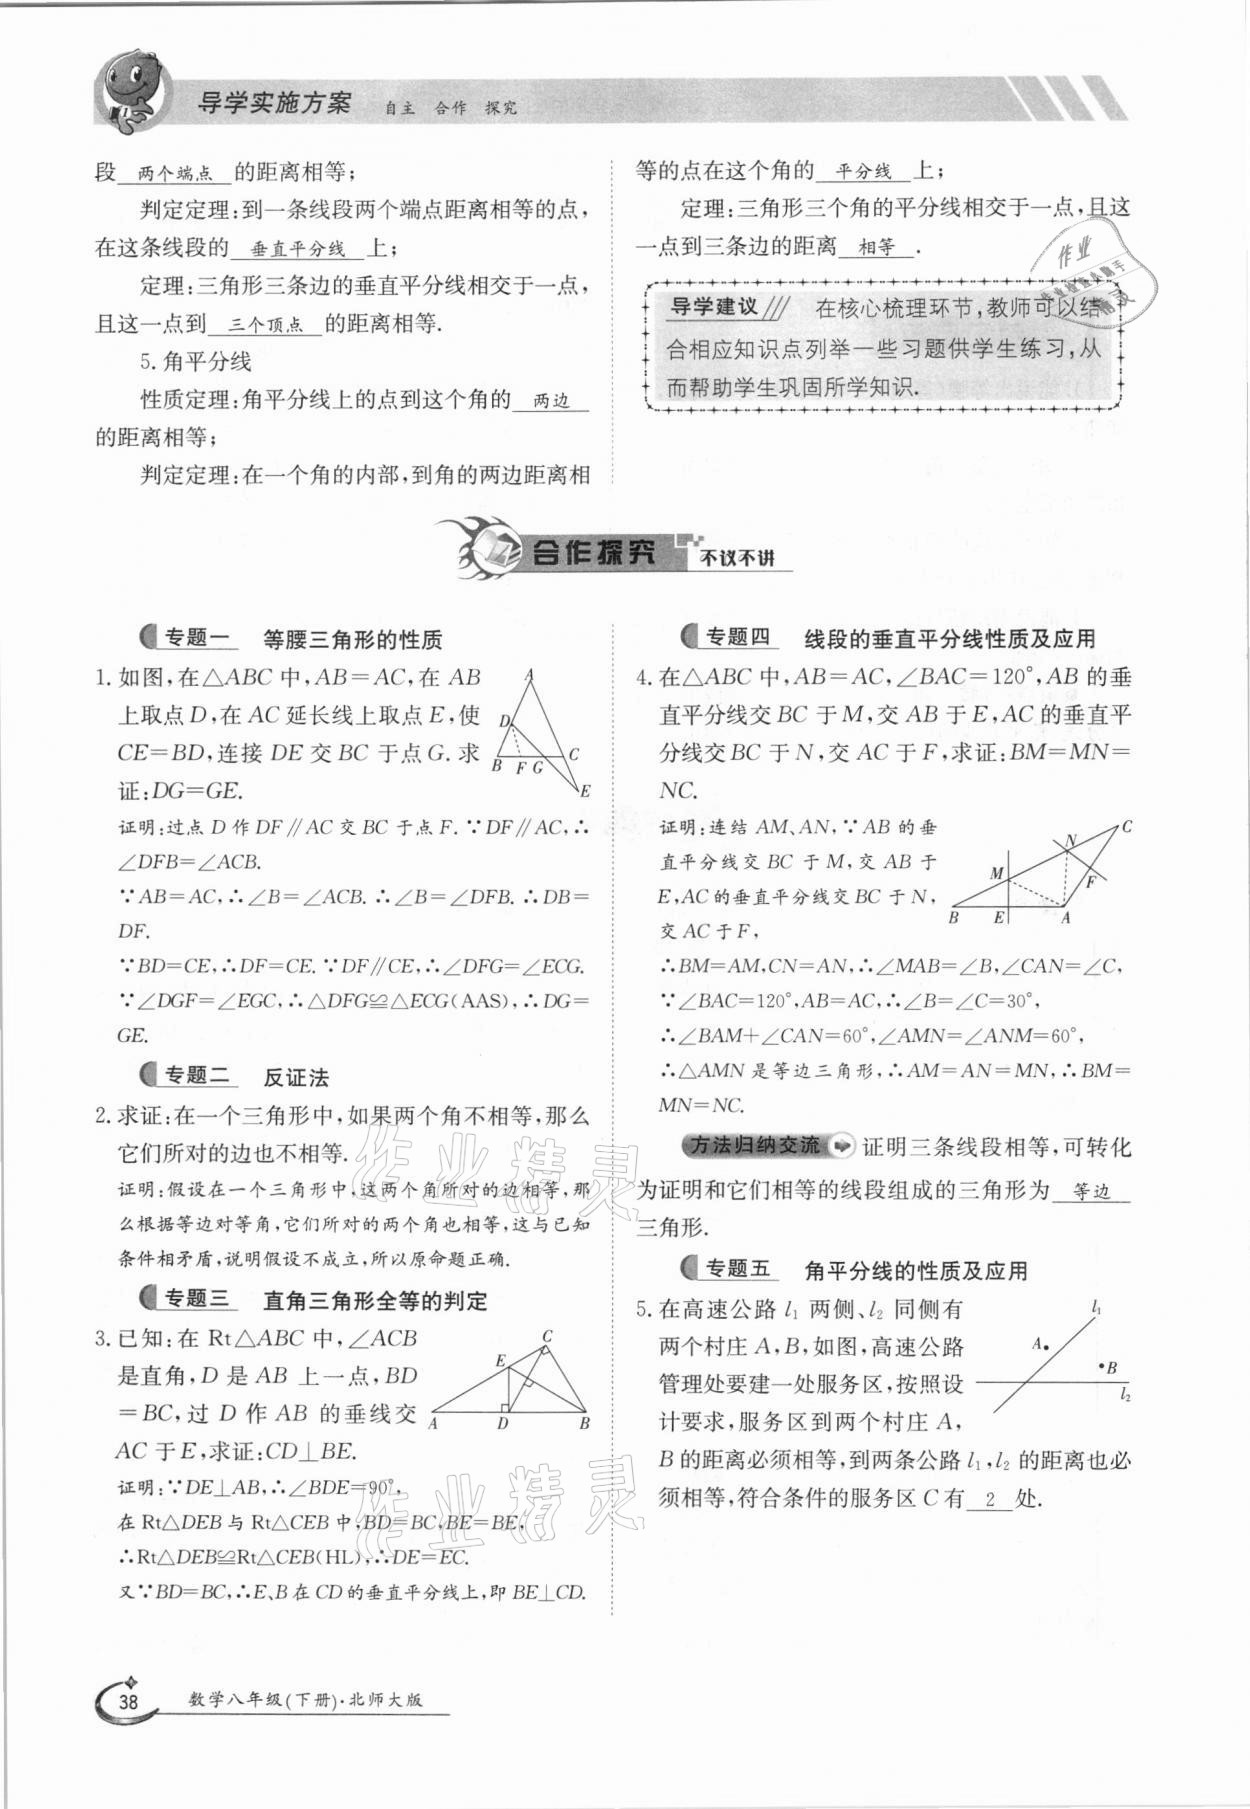 导学实施方案 自主 合作 探究
段 两个端点 的距离相等;
判定定理:到一条线段两个端点距离相等的点,
在这条线段的 垂直平分线 上;
定理:三角形三条边的垂直平分线相交于一点,
且这一点到 三个顶点 的距离相等.
5. 角平分线
性质定理:角平分线上的点到这个角的 两边
的距离相等;
判定定理:在一个角的内部,到角的两边距离相
等的点在这个角的 平分线 上;
定理:三角形三个角的平分线相交于一点,且这
一点到三条边的距离 相等 .
导学建议 在核心梳理环节,教师可以结
合相应知识点列举一些习题供学生练习,从
而帮助学生巩固所学知识.
合作探究 不议不讲
专题一 等腰三角形的性质
1. 如图,在△ABC 中,AB=AC,在 AB
上取点 D,在 AC 延长线上取点 E,使
CE=BD,连接 DE 交 BC 于点 G. 求
证:DG=GE.
A
D
B F G C
E
证明:过点 D 作 DF∥AC 交 BC 于点 F. ∵DF∥AC,∴
∠DFB=∠ACB.
∵AB=AC,∴∠B=∠ACB. ∴∠B=∠DFB. ∴DB=
DF.
∵BD=CE,∴DF=CE. ∵DF∥CE,∴∠DFG=∠ECG.
∵∠DGF=∠EGC,∴△DFG≌△ECG(AAS),∴DG=
GE.
专题二 反证法
2. 求证:在一个三角形中,如果两个角不相等,那么
它们所对的边也不相等.
证明:假设在一个三角形中,这两个角所对的边相等,那
么根据等边对等角,它们所对的两个角也相等,这与已知
条件相矛盾,说明假设不成立,所以原命题正确.
专题三 直角三角形全等的判定
3. 已知:在 Rt△ABC 中,∠ACB
是直角,D 是 AB 上一点,BD
=BC,过 D 作 AB 的垂线交
AC 于 E,求证:CD⊥BE.
C
E
A D B
证明:∵DE⊥AB,∴∠BDE=90°,
在 Rt△DEB 与 Rt△CEB 中,BD=BC,BE=BE,
∴Rt△DEB≌Rt△CEB(HL),∴DE=EC.
又∵BD=BC,∴E、B 在 CD 的垂直平分线上,即 BE⊥CD.
专题四 线段的垂直平分线性质及应用
4. 在△ABC 中,AB=AC,∠BAC=120°,AB 的垂
直平分线交 BC 于 M,交 AB 于 E,AC 的垂直平
分线交 BC 于 N,交 AC 于 F,求证:BM=MN=
NC.
证明:连结 AM、AN,∵AB 的垂
直平分线交 BC 于 M,交 AB 于
E,AC 的垂直平分线交 BC 于 N,
交 AC 于 F,
C
N
M
F
B E A
∴BM=AM,CN=AN,∴∠MAB=∠B,∠CAN=∠C,
∵∠BAC=120°,AB=AC,∴∠B=∠C=30°,
∴∠BAM+∠CAN=60°,∠AMN=∠ANM=60°,
∴△AMN 是等边三角形,∴AM=AN=MN,∴BM=
MN=NC.
方法归纳交流 证明三条线段相等,可转化
为证明和它们相等的线段组成的三角形为 等边
三角形.
专题五 角平分线的性质及应用
5. 在高速公路 l₁ 两侧、l₂ 同侧有
两个村庄 A,B,如图,高速公路
管理处要建一处服务区,按照设
计要求,服务区到两个村庄 A,
B 的距离必须相等,到两条公路 l₁,l₂ 的距离也必
须相等,符合条件的服务区 C 有 2 处.
l₁
A
B
l₂
作业精灵
作业精灵
38 数学八年级(下册)·北师大版